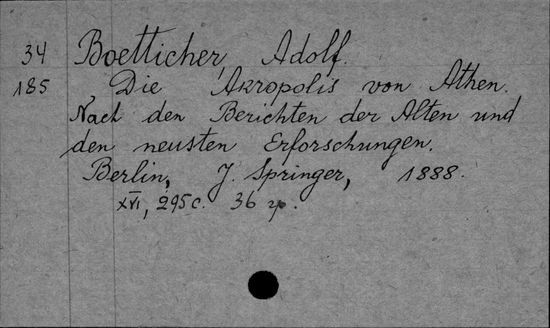 34 Boetticher, Adolf.
185 Die Akropolis von Athen.
Nach den Berichten der Alten und
den neusten Erforschungen.
Berlin, J. Springer, 1888.
XVI, 295 с. 36 г.